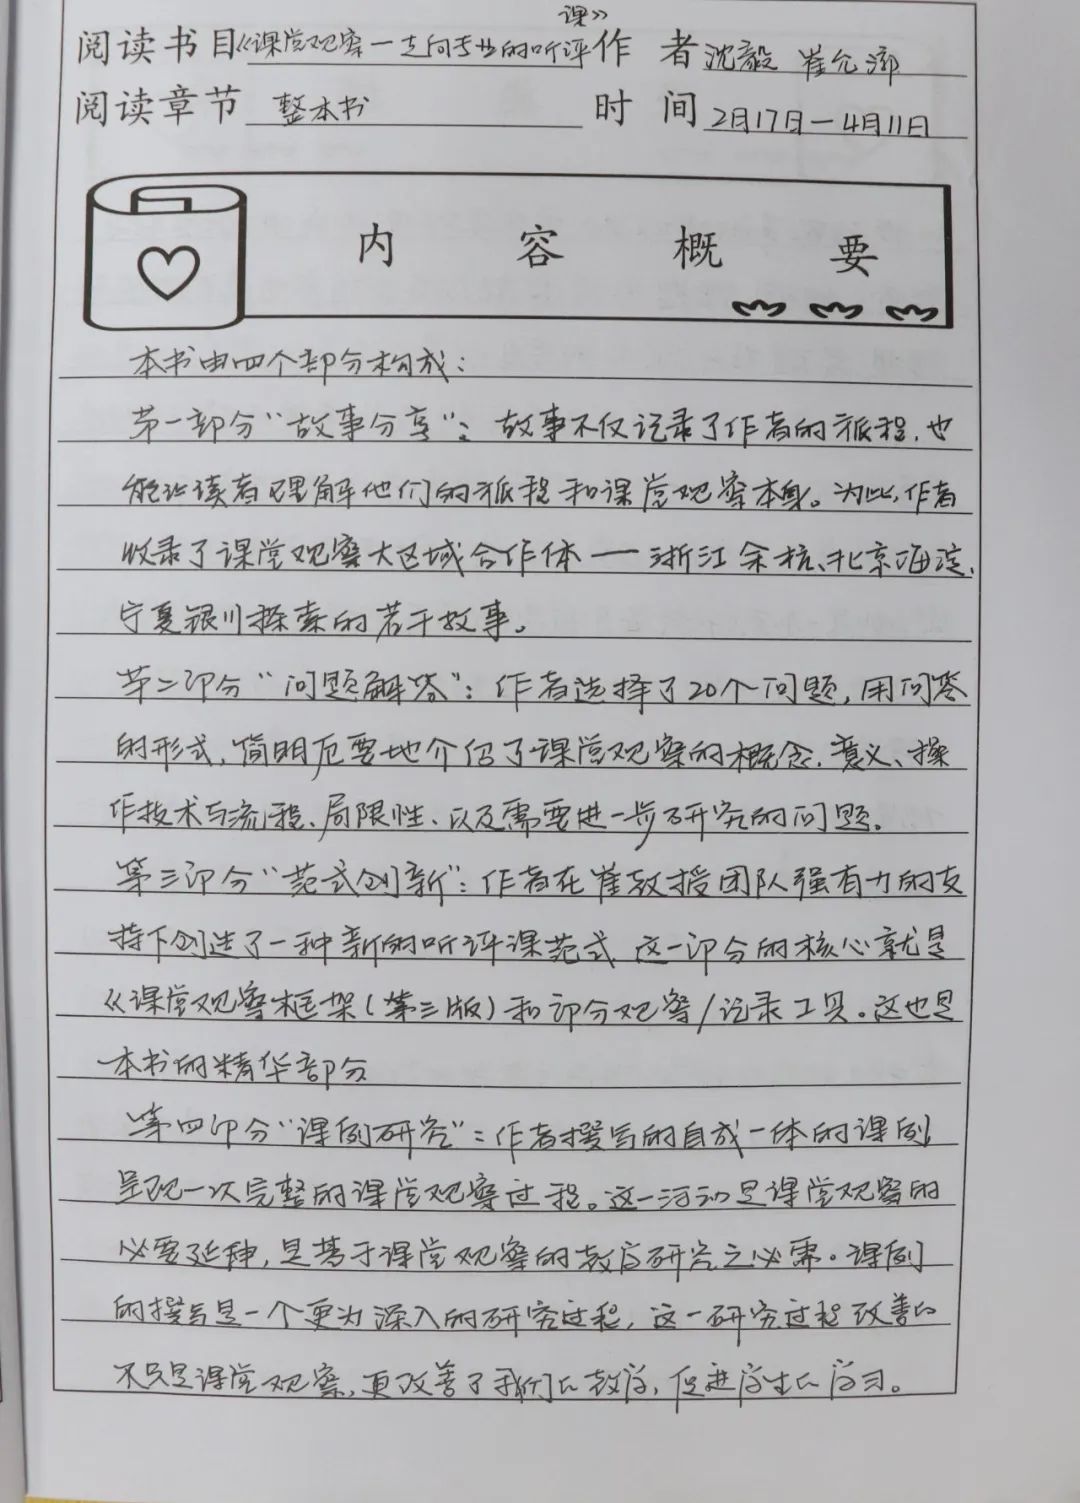 课》
阅读书目《课堂观察—走向专业的听评 作 者 沈毅 崔允漷
阅读章节 整本书 时 间 2月17日—4月11日
内 容 概 要
本书由四个部分构成：
第一部分“故事分享”：故事不仅记录了作者的旅程，也
能让读者理解他们的旅程和课堂观察本身。为此，作者
收录了课堂观察大区域合作体——浙江余杭、北京海淀、
宁夏银川探索的若干故事。
第二部分“问题解答”：作者选择了20个问题，用问答
的形式，简明厄要地介绍了课堂观察的概念、意义、操
作技术与流程、局限性、以及需要进一步研究的问题。
第三部分“范式创新”：作者在崔教授团队强有力的支
持下创造了一种新的听评课范式，这一部分的核心就是
《课堂观察框架（第三版）和部分观察/记录工具。这也是
本书的精华部分
第四部分“课例研究”：作者撰写的自成一体的课例
呈现一次完整的课堂观察过程。这一活动是课堂观察的
必要延伸，是基于课堂观察的教育研究之必需。课例
的撰写是一个更为深入的研究过程，这一研究过程改善的
不只是课堂观察，更改善了我们的教学，促进学生的学习。